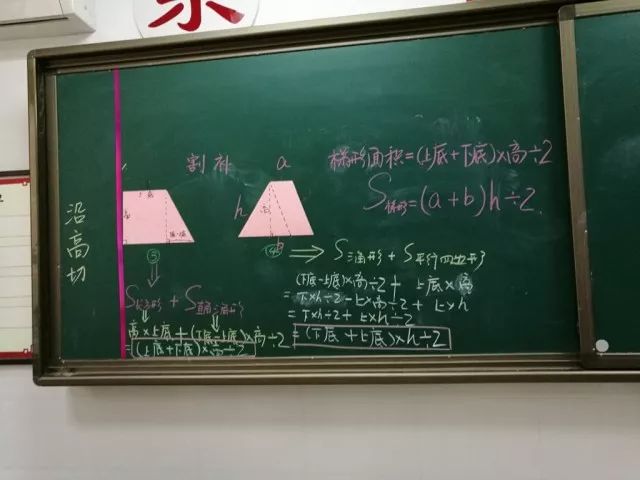 割补
a
梯形面积=(上底+下底)×高÷2
S梯形=(a+b)h÷2.
沿高切
h
b
③
④
S三角形 + S平行四边形
(下底-上底)×高÷2 + 上底×高
=下×h÷2-上×高÷2 + 上×h
=下×h÷2 + 上×h÷2
=(下底+上底)×h÷2
S长方形 + S直角三角形
高×上底+(下底-上底)×高÷2
=(上底+下底)×高÷2